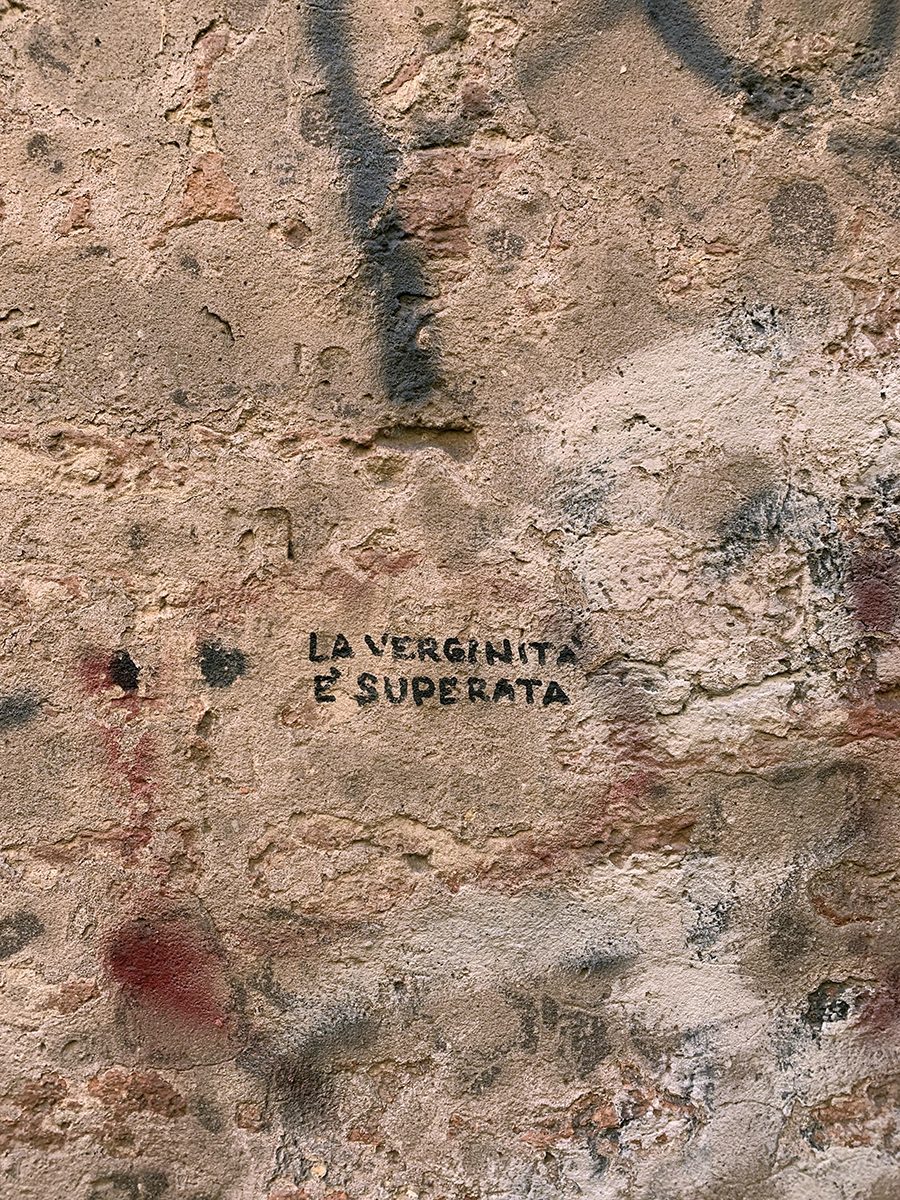 LA VERGINITÀ
E' SUPERATA